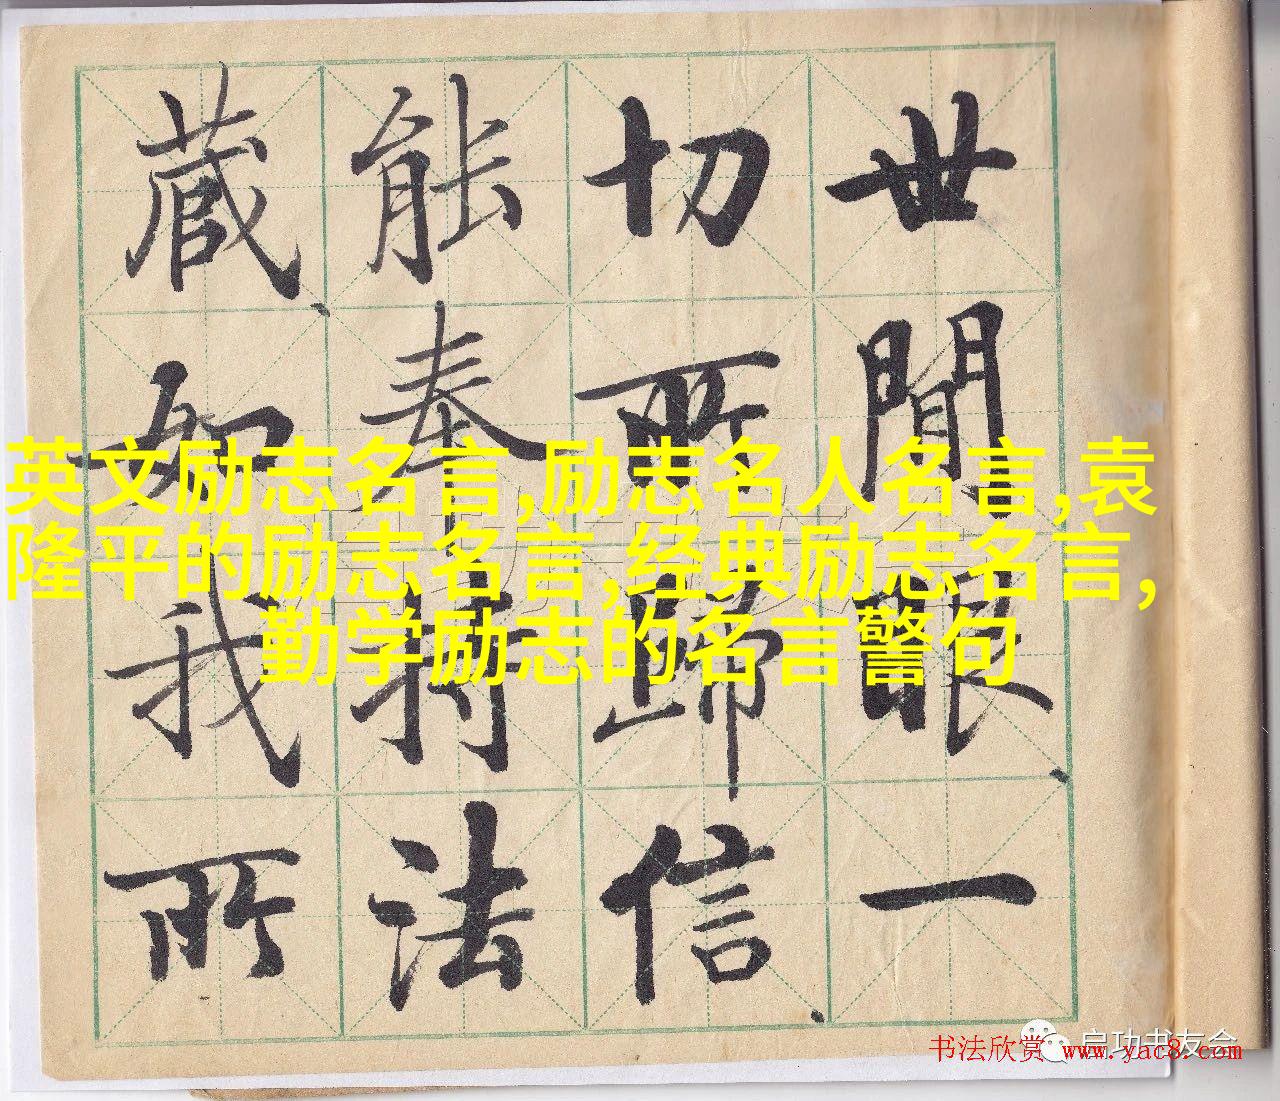 世間眼一
切所歸信
能奉持法
藏如我所
英文励志名言,励志名人名言,袁
隆平的励志名言,经典励志名言,
勤学励志的名言警句
启功书友会
书法欣赏 www.yac8.com